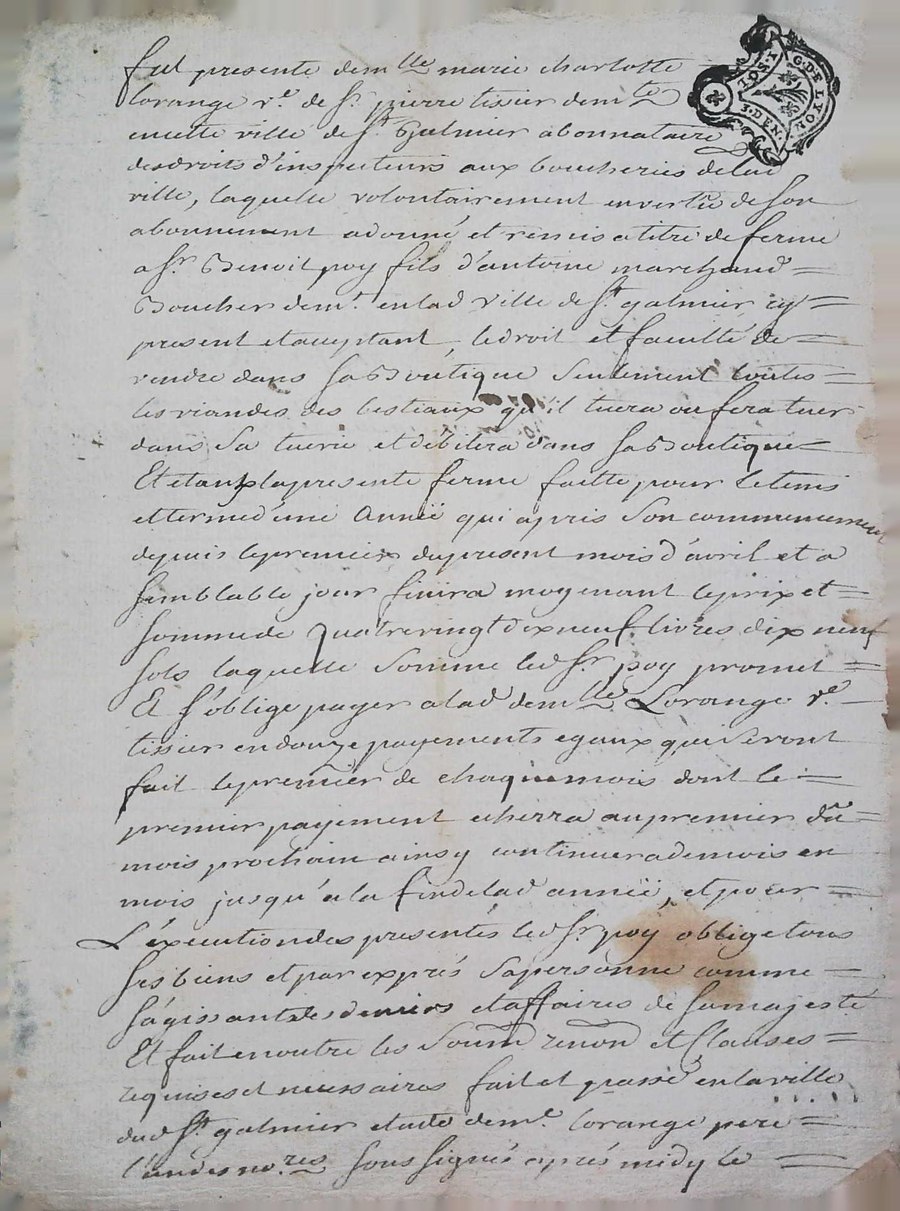 G. DE LYON
3. DEN.
fut presente dem.lle marie charlotte
Lorange v.e de S.r pierre tissier dem.te
en cette ville de S.t Galmier abonnataire
des droits d'inspecteurs aux boucheries de lad
ville, laquelle volontairement en vertu de son
abonnement a donné et remis a titre de ferme
a S.r Benoit poy fils d'antoine marchand =
Boucher dem.t en lad ville de S.t galmier icy =
present et acceptant, le droit et faculté de =
vendre dans sa Boutique seulement toutes =
les viandes des bestiaux qu'il tuera ou fera tuer
dans sa tuerie et debitera dans sa Boutique =
Et etant la presente ferme faitte pour le tems
et terme d'une Anneé qui a pris son commencement
depuis le premier du present mois d'avril et a
semblable jour finira moyenant le prix et =
somme de quatre vingt dix neuf livres dix neuf
sols laquelle somme led S.r poy promet =
Et s'oblige payer a lad dem.lle Lorange v.e
tissier en douze payements egaux qui seront
fait le premier de chaque mois dont le =
premier payement echerra au premier du =
mois prochain ainsy continuera de mois en
mois jusqu'a la fin de lad anneé, et pour =
L'execution des presentes led S.r poy oblige tous
ses biens et par exprés sa personne comme =
s'agissant des deniers et affaires de sa majesté
Et fait en outre les soum renon et Clauses =
requises et necessaires fait et passé en la ville
dud S.t galmier etude de m.e Lorange pere =
l'un des no.res soussignés aprés midy le =